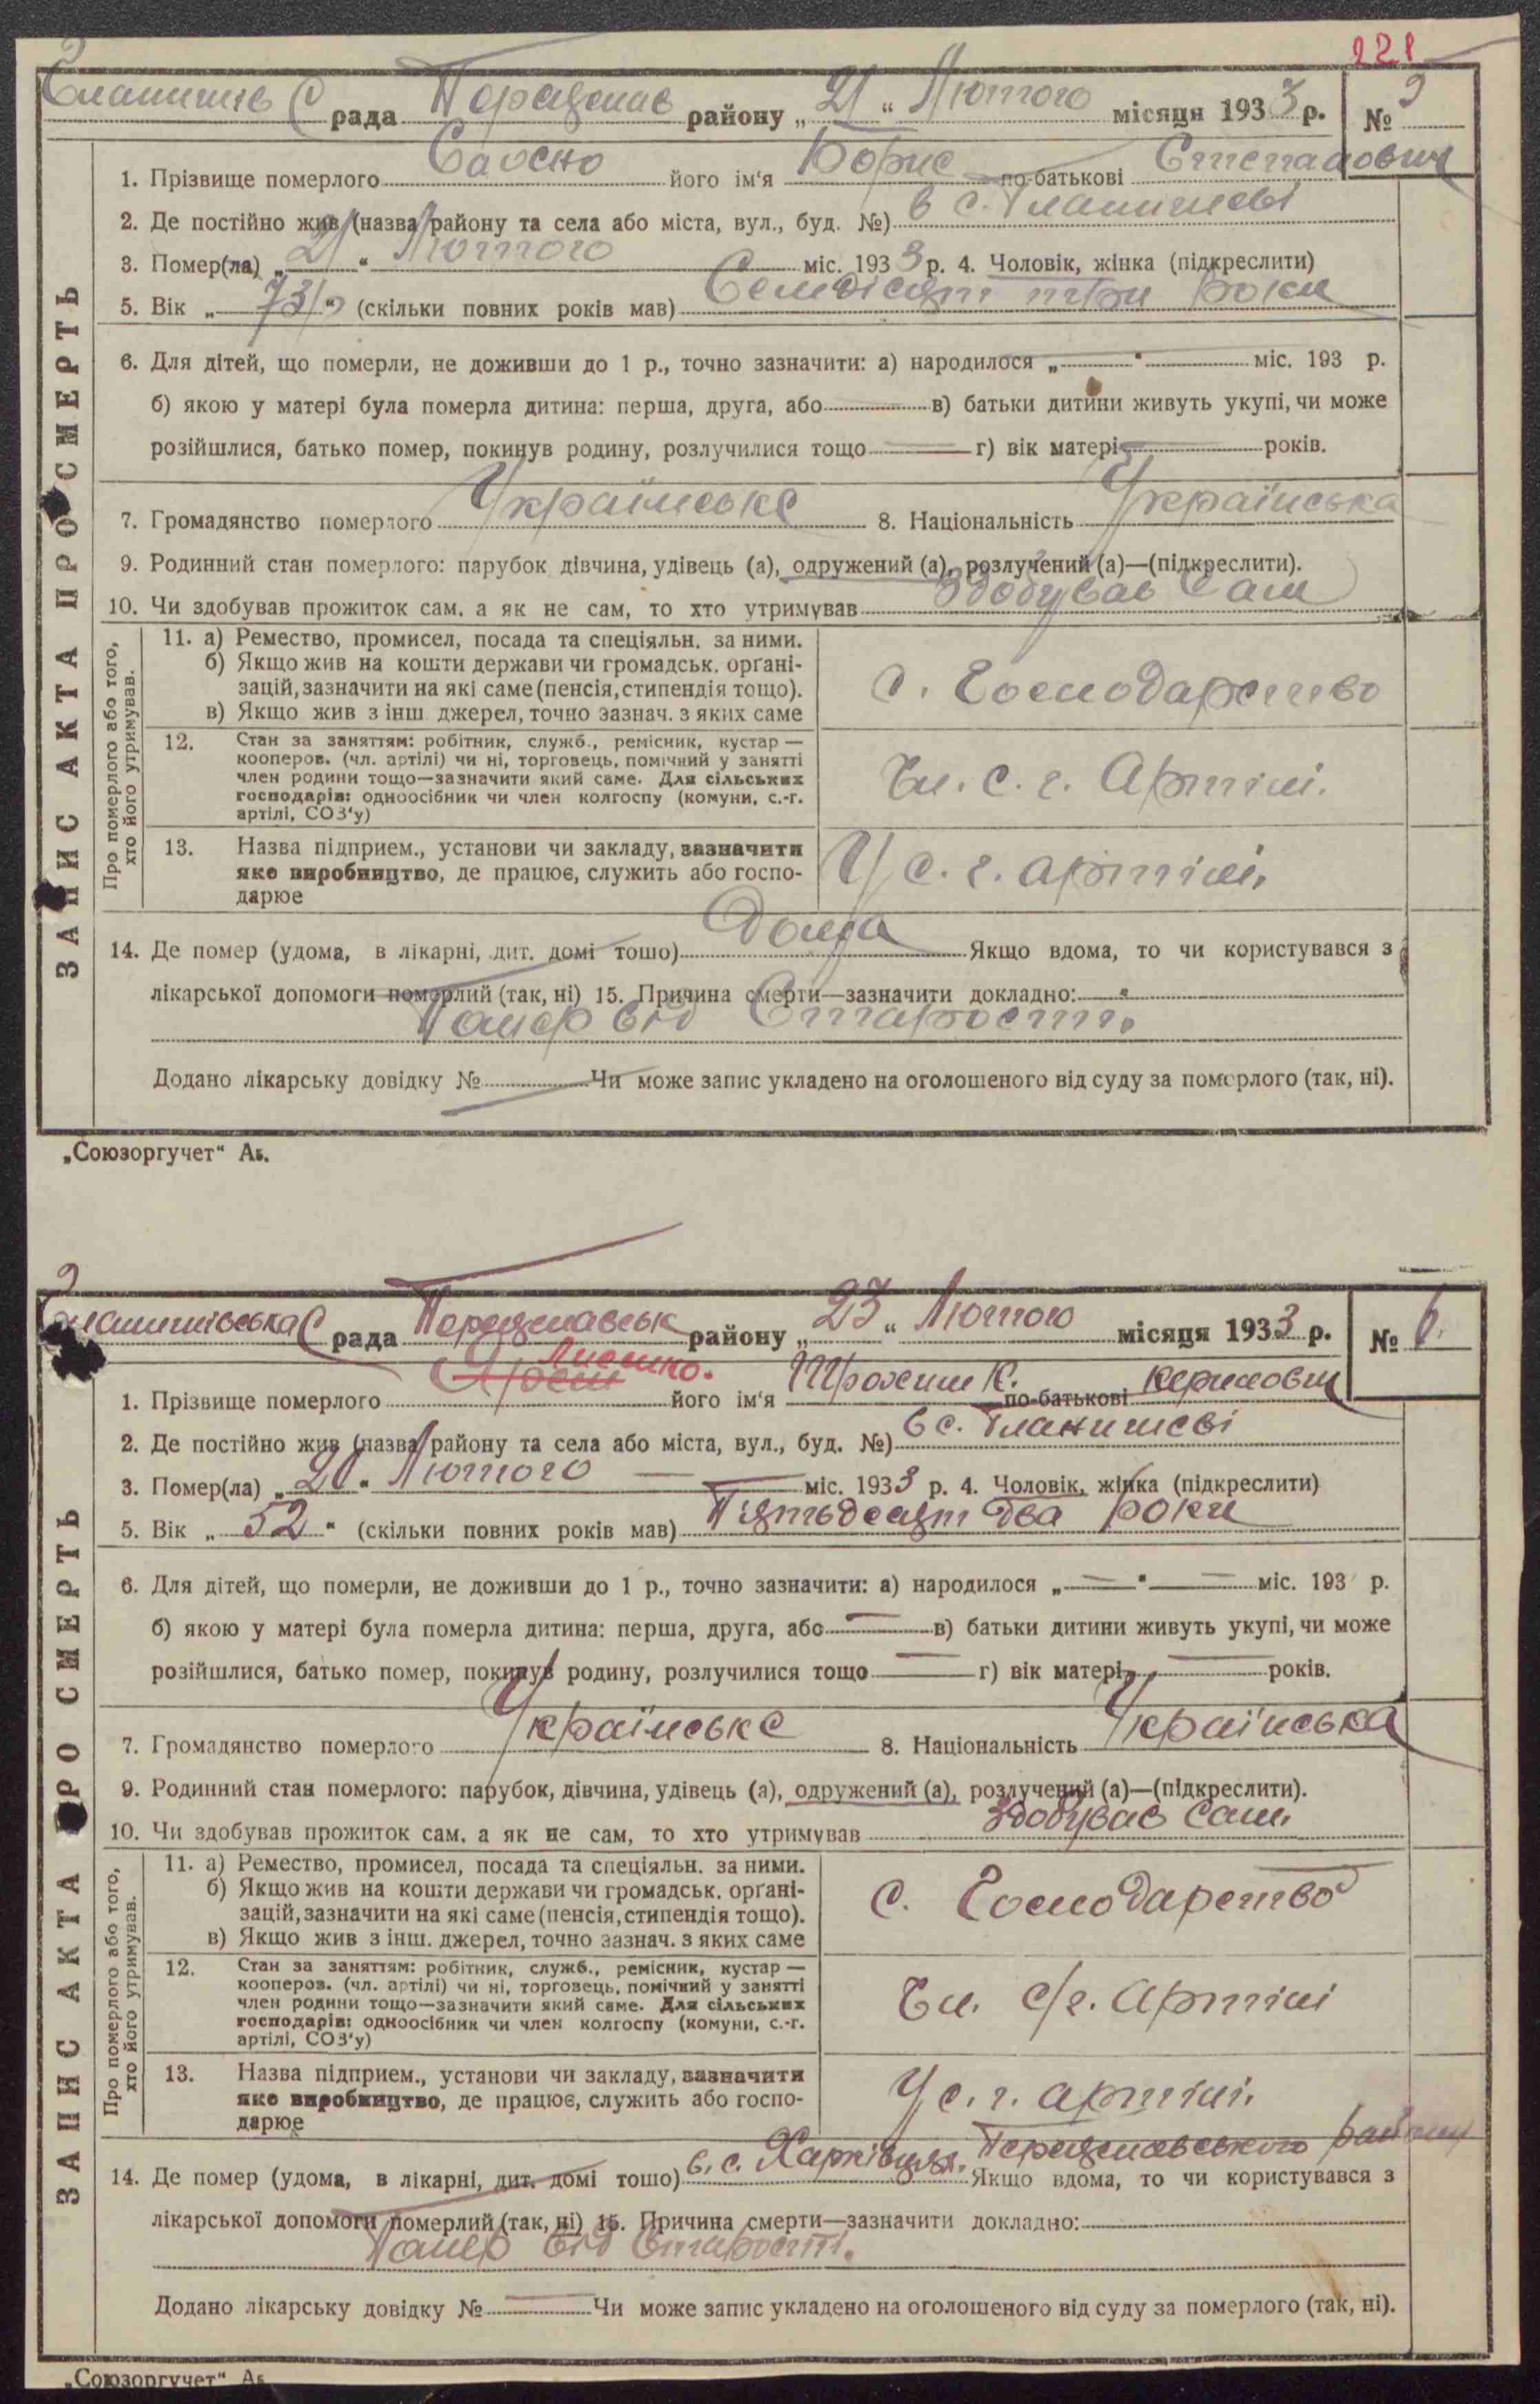 221
рада району „ 21 “ Лютого місяця 1933 р. №
1. Прізвище померлого його ім'я Борис по-батькові Степанович
2. Де постійно жив (назва району та села або міста, вул., буд. №) в с.
3. Помер(ла) „ 21 “ Лютого міс. 1933 р. 4. Чоловік, жінка (підкреслити)
5. Вік „ 73 “ (скільки повних років мав) Семдісят три роки
6. Для дітей, що померли, не доживши до 1 р., точно зазначити: а) народилося „ “ міс. 193 р.
б) якою у матері була померла дитина: перша, друга, або в) батьки дитини живуть укупі, чи може
розійшлися, батько помер, покинув родину, розлучилися тощо г) вік матері років.
7. Громадянство померлого Українське 8. Національність Українська
9. Родинний стан померлого: парубок дівчина, удівець (а), одружений (а), розлучений (а)—(підкреслити).
10. Чи здобував прожиток сам, а як не сам, то хто утримував Здобував Сам
ЗАПИС АКТА ПРО СМЕРТЬ
Про померлого або того, хто його утримував.
11. а) Ремество, промисел, посада та спеціяльн. за ними.
б) Якщо жив на кошти держави чи громадськ. орґані-
зацій, зазначити на які саме (пенсія, стипендія тощо).
в) Якщо жив з інш. джерел, точно зазнач. з яких саме
С. Господарство
12. Стан за заняттям: робітник, служб., ремісник, кустар —
кооперов. (чл. артілі) чи ні, торговець, помічний у занятті
член родини тощо—зазначити який саме. Для сільських
господарів: одноосібник чи член колгоспу (комуни, с.-г.
артілі, СОЗ'у)
Чл. с. г. Артілі.
13. Назва підприєм., установи чи закладу, зазначити
яке виробництво, де працює, служить або госпо-
дарює
У с. г. артілі.
14. Де помер (удома, в лікарні, дит. домі тощо) Дома Якщо вдома, то чи користувався з
лікарської допомоги померлий (так, ні) 15. Причина смерти—зазначити докладно:
Помер від Старости.
Додано лікарську довідку № Чи може запис укладено на оголошеного від суду за померлого (так, ні).
„Союзоргучет“ Ав.
рада Переяславськ району „ 23 “ Лютого місяця 1933 р. № 6.
Лисенко.
1. Прізвище померлого його ім'я Трохим К. по-батькові
2. Де постійно жив (назва району та села або міста, вул., буд. №) в с.
3. Помер(ла) „ “ Лютого міс. 1933 р. 4. Чоловік, жінка (підкреслити)
5. Вік „ 52 “ (скільки повних років мав) Пятьдесят два роки
6. Для дітей, що померли, не доживши до 1 р., точно зазначити: а) народилося „ “ міс. 193 р.
б) якою у матері була померла дитина: перша, друга, або в) батьки дитини живуть укупі, чи може
розійшлися, батько помер, покинув родину, розлучилися тощо г) вік матері років.
7. Громадянство померлого Українське 8. Національність Українська
9. Родинний стан померлого: парубок, дівчина, удівець (а), одружений (а), розлучений (а)—(підкреслити).
10. Чи здобував прожиток сам, а як не сам, то хто утримував Здобував Сам.
ЗАПИС АКТА ПРО СМЕРТЬ
Про померлого або того, хто його утримував.
11. а) Ремество, промисел, посада та спеціяльн. за ними.
б) Якщо жив на кошти держави чи громадськ. орґані-
зацій, зазначити на які саме (пенсія, стипендія тощо).
в) Якщо жив з інш. джерел, точно зазнач. з яких саме
С. Господарство
12. Стан за заняттям: робітник, служб., ремісник, кустар —
кооперов. (чл. артілі) чи ні, торговець, помічний у занятті
член родини тощо—зазначити який саме. Для сільських
господарів: одноосібник чи член колгоспу (комуни, с.-г.
артілі, СОЗ'у)
Чл. с/г. Артілі
13. Назва підприєм., установи чи закладу, зазначити
яке виробництво, де працює, служить або госпо-
дарює
У с. г. артілі.
14. Де помер (удома, в лікарні, дит. домі тощо) в. с. Харківцях. Переяславського району Якщо вдома, то чи користувався з
лікарської допомоги померлий (так, ні) 15. Причина смерти—зазначити докладно:
Помер від Старости.
Додано лікарську довідку № Чи може запис укладено на оголошеного від суду за померлого (так, ні).
„Союзоргучет“ Ав